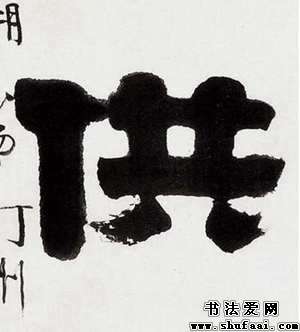 供
书法爱网
www.shufaai.com